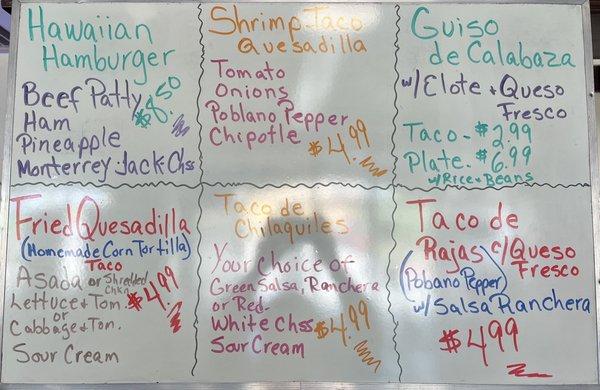 Hawaiian
Hamburger
Beef Patty
Ham
Pineapple
Monterrey Jack Chss
$8.50
Shrimp Taco
Quesadilla
Tomato
Onions
Poblano Pepper
Chipotle
$4.99
Guiso
de Calabaza
w/Elote + Queso
Fresco
Taco - $2.99
Plate - $6.99
w/Rice + Beans
Fried Quesadilla
(Homemade Corn Tortilla)
Taco
Asada or Shredded
Chkn
Lettuce + Tom.
or
Cabbage + Tom.
Sour Cream
$4.99
Taco de
Chilaquiles
Your Choice of
Green Salsa, Ranchera
or Red.
White Chss
Sour Cream
$4.99
Taco de
Rajas c/Queso
Fresco
(Pobano Pepper)
w/Salsa Ranchera
$4.99